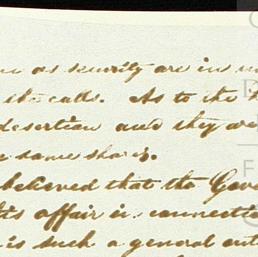 as security are in
the calls. As to the
desertion and they we
same shares.
believed that the Gove
affair in connectio
is such a general